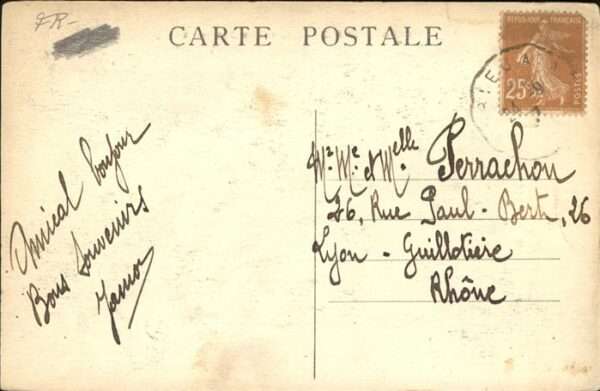 FR-
CARTE POSTALE
REPUBLIQUE FRANÇAISE
25c
POSTES
Amical bonjour
Bons Souvenirs
Mr. Me et Melle Perrachon
26, Rue Paul-Bert, 26
Lyon - Guillotière
Rhône